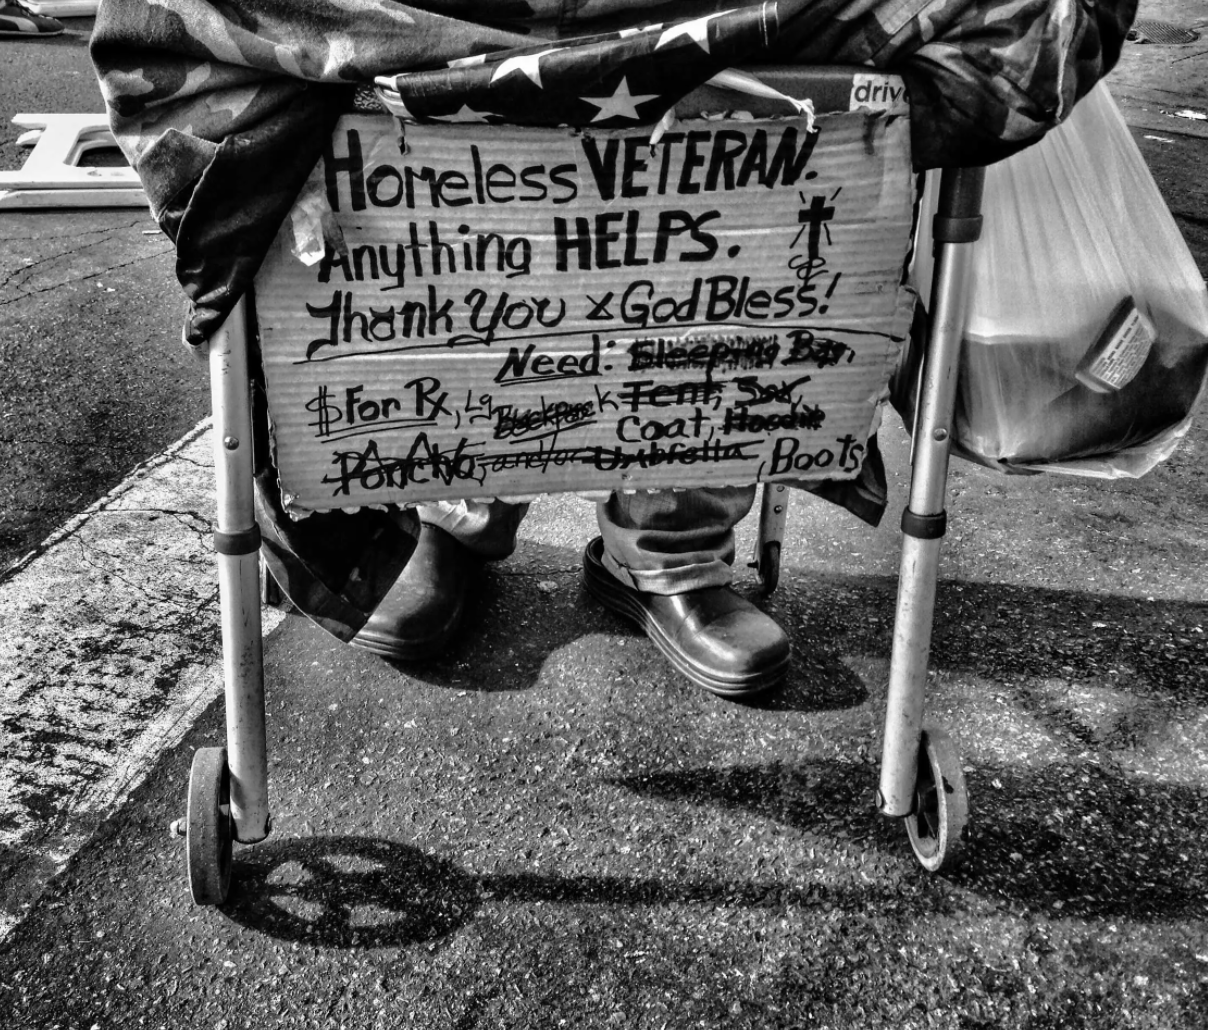 drive
Homeless VETERAN.
Anything HELPS.
Thank You & God Bless!
Need: Sleeping Bag,
$ For Rx, Lg Backpack Tent, Sox,
Coat, Hoodie
Poncho and/or Umbrella, Boots